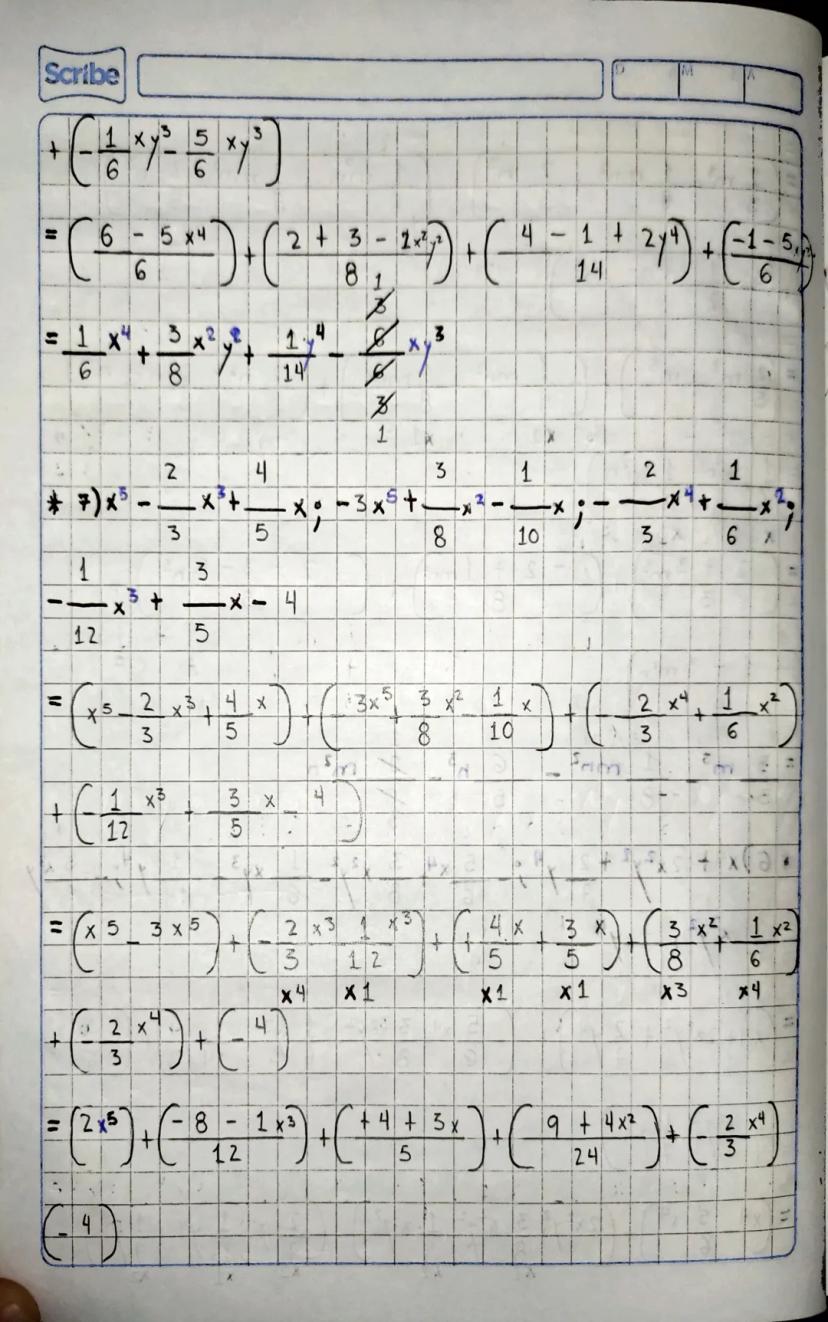 Scribe
D M A
+ (-1/6 xy³ - 5/6 xy³)
= (6 - 5x⁴/6) + (2 + 3 - 2x²y²/8) + (4 - 1 + 2y⁴/14) + (-1 - 5xy³/6)
1
3
= 1/6 x⁴ + 3/8 x²y² + 1/14 y⁴ - 6/6 xy³
3
1
* 7) x⁵ - 2/3 x³ + 4/5 x ; -3x⁵ + 3/8 x² - 1/10 x ; - 2/3 x⁴ + 1/6 x² ;
- 1/12 x³ + 3/5 x - 4
= (x⁵ - 2/3 x³ + 4/5 x) + (-3x⁵ + 3/8 x² - 1/10 x) + (- 2/3 x⁴ + 1/6 x²)
+ (- 1/12 x³ + 3/5 x - 4)
= (x⁵ - 3x⁵) + (- 2/3 x³ - 1/12 x³) + (+ 4/5 x + 3/5 x) + (3/8 x² + 1/6 x²)
x4 x1 x1 x1 x3 x4
+ (- 2/3 x⁴) + (-4)
= (2x⁵) + (-8 - 1x³/12) + (+4 + 3x/5) + (9 + 4x²/24) + (- 2/3 x⁴)
(-4)